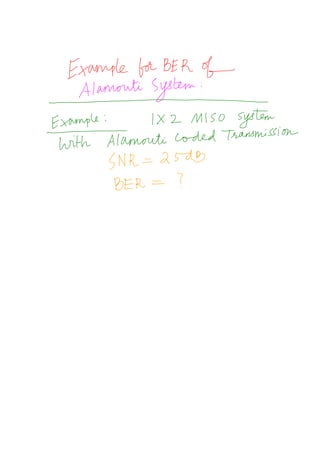 Example for BER of
Alamouti System.
Example: 1X2 MISO system
with Alamouti coded Transmission
SNR = 25dB
BER = ?